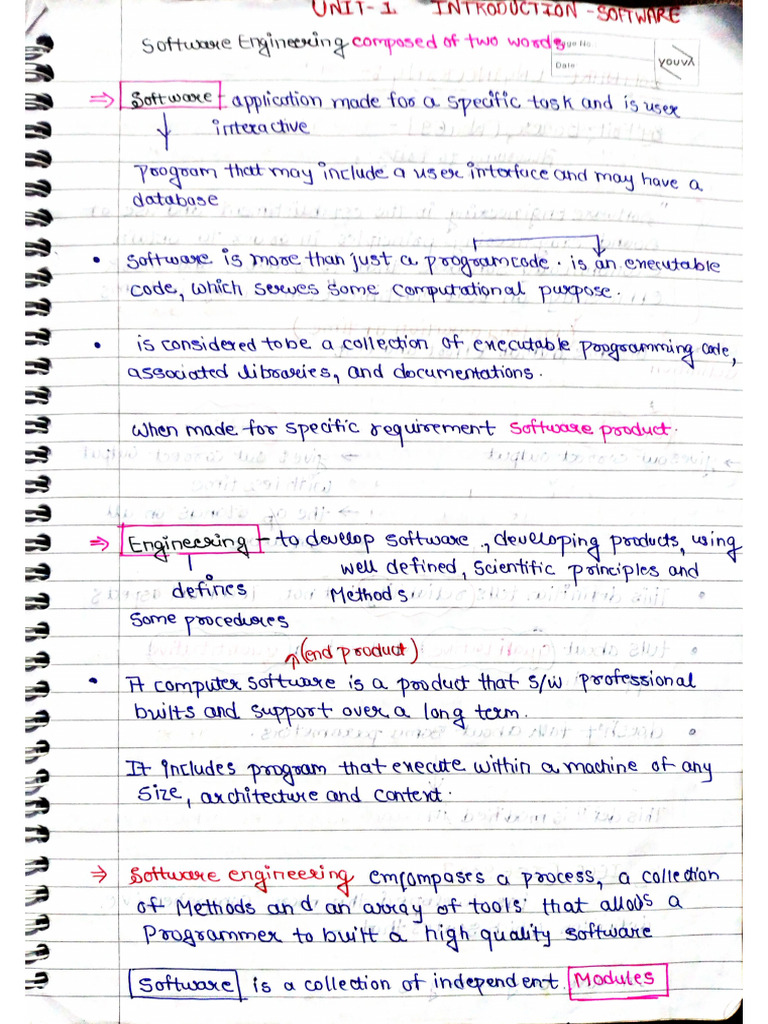 UNIT-1 INTRODUCTION-SOFTWARE
Software Engineering composed of two words
Page No.
Date
youva
⇒ Software - application made for a specific task and is user
interactive
program that may include a user interface and may have a
database
• Software is more than just a program code. is an executable
code, which serves some computational purpose.
• is considered to be a collection of executable programming code,
associated libraries, and documentations.
When made for specific requirement software product.
⇒ Engineering - to develop software, developing products, using
well defined, scientific principles and
defines Methods.
some procedures
(end product)
• A computer software is a product that s/w professional
builts and support over a long term.
It includes program that execute within a machine of any
size, architecture and context.
⇒ Software engineering emcompases a process, a collection
of Methods and an array of tools that allows a
Programmer to built a high quality software
Software is a collection of independent Modules